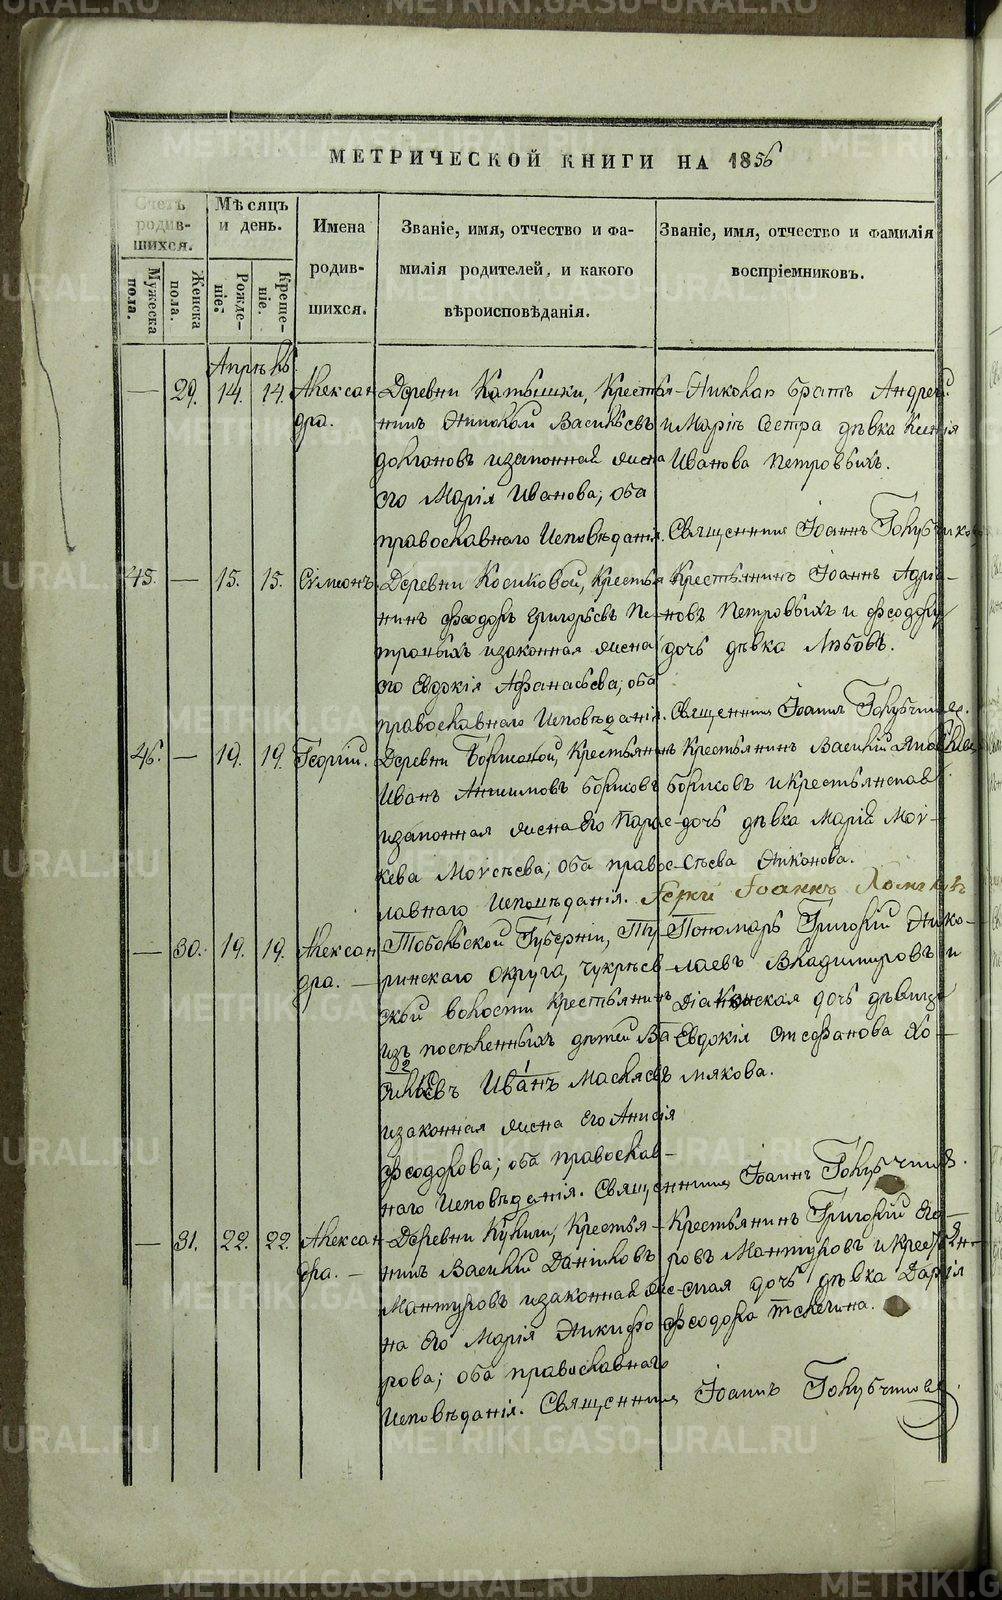 МЕТРИЧЕСКОЙ КНИГИ НА 1856
Счетъ родив-шихся.
Мѣсяцъ и день.
Имена родив-шихся.
Званіе, имя, отчество и фа-
милія родителей, и какого
вѣроисповѣданія.
Званіе, имя, отчество и фамилія
воспріемниковъ.
Мужеска пола.
Женска пола.
Рожде-ніе.
Креще-ніе.
Апрѣль
— 29. 14. 14. Алексан
дра.
Деревни Катышки, Крестья-
нинъ Николай Васильевъ
Долгановъ и законная жена
его Марія Иванова; оба
православнаго Исповѣданія.
Николая братъ Андрей
и Маріи Сестра дѣвка Ксенія
Иванова Петровыхъ.
Священникъ Іоаннъ Голубчиковъ
45. — 15. 15. Симеонъ.
Деревни Косиковой, Крестья
нинъ Феодоръ Григорьевъ Пе-
тровыхъ и законная жена
его Евдокія Афанасьева; оба
православнаго Исповѣданія.
Крестьянинъ Іоаннъ Адріа-
новъ Петровыхъ и Феодора
дочь дѣвка Любовь.
Священникъ Іоаннъ Голубчиковъ.
46. — 19. 19. Георгій.
Деревни Борисовой, Крестьянинъ
Иванъ Борисовъ
и законная жена его Параске-
ва Моисеева; оба правос-
лавнаго Исповѣданія.
Крестьянинъ Василій
Борисовъ и Крестьянская
дочь дѣвка Марія Мои-
сеева Никонова.
Іерей Іоаннъ Холмяковъ
— 30. 19. 19. Алексан
дра. —
Тобольской Губерніи, Ту-
ринскаго округа, Куктѣев-
ской волости Крестьянинъ
изъ поселенныхъ дѣтей Ва-
2 1
сильевъ Иванъ Маслясъ
и законная жена его Анисія
Феодорова; оба православ-
наго Исповѣданія.
Пономарь Григорій Нико-
лаевъ Владимировъ и
Діаконская дочь дѣвица
Евдокія Стефанова Хол-
мякова.
Священникъ Іоаннъ Голубчиковъ.
— 31. 22. 22. Алексан
дра. —
Деревни Крестья-
нинъ Василій Даніиловъ
Мантуровъ и законная же-
на его Марія Никифо-
рова; оба православнаго
Исповѣданія.
Крестьянинъ Григорій Его-
ровъ Мантуровъ и Крестьян-
ская дочь дѣвка Дарія
Феодора
Священникъ Іоаннъ Голубчиковъ.
METRIKI.GASO-URAL.RU